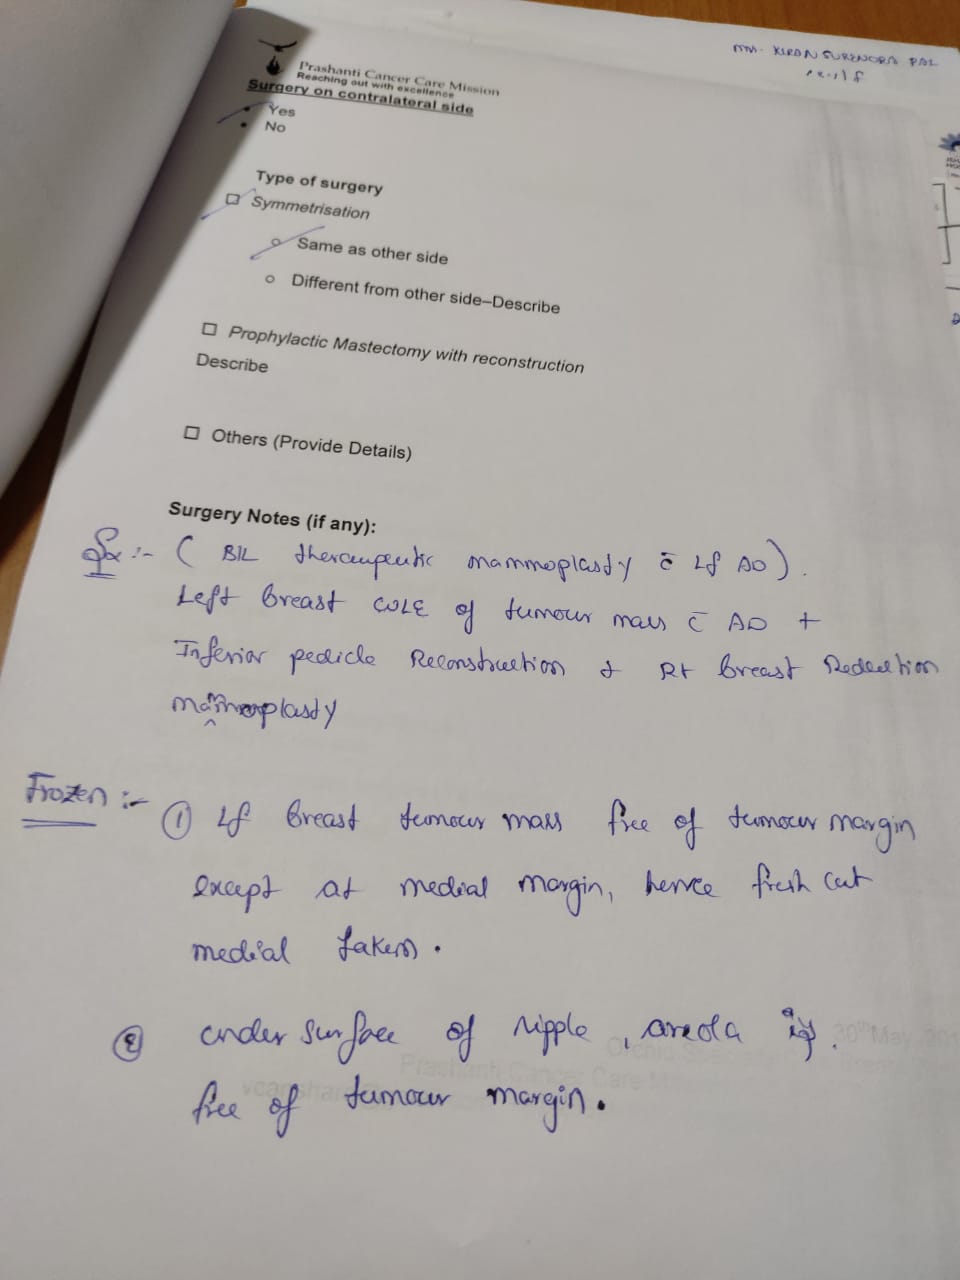 Mrs. KIRAN SURENDRA PAL
Prashanti Cancer Care Mission
Reaching out with excellence
Surgery on contralateral side
• Yes
• No
Type of surgery
☐ Symmetrisation
o Same as other side
o Different from other side–Describe
☐ Prophylactic Mastectomy with reconstruction
Describe
☐ Others (Provide Details)
Surgery Notes (if any):
Sx :- ( B/L therapeutic mammoplasty c̄ Lf AD ).
Left breast WLE of tumour mass c̄ AD +
Inferior pedicle Reconstruction & Rt breast Reduction
mammoplasty
Frozen :-
① Lf breast tumour mass free of tumour margin
except at medial margin, hence fresh cut
medial taken.
② under surface of nipple, areola is
free of tumour margin.
30th May
Prashanti Cancer Care